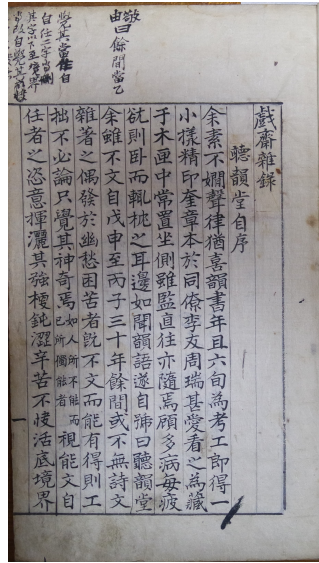 敬曰餘間當乙
戲齋雜錄
聽韻堂自序
余素不嫺聲律猶喜韻書年且六旬為考工郎得一
小樣精印奎章本於同僚李友周瑞甚愛看之為藏
于木匣中常置坐側雖監直往亦隨焉顧多病每疲
欹則臥而輒枕之耳邊如聞韻語遂自號曰聽韻堂
余雖不文自戊申至丙子三十年餘間或不無詩文
雜著之偶發於幽愁困苦者旣不文而能有得則工
拙不必論只覺其神奇焉如人所不能而己所獨能者視能文自
任者之恣意揮灑其強標鈍澀辛苦不悛活底境界
一